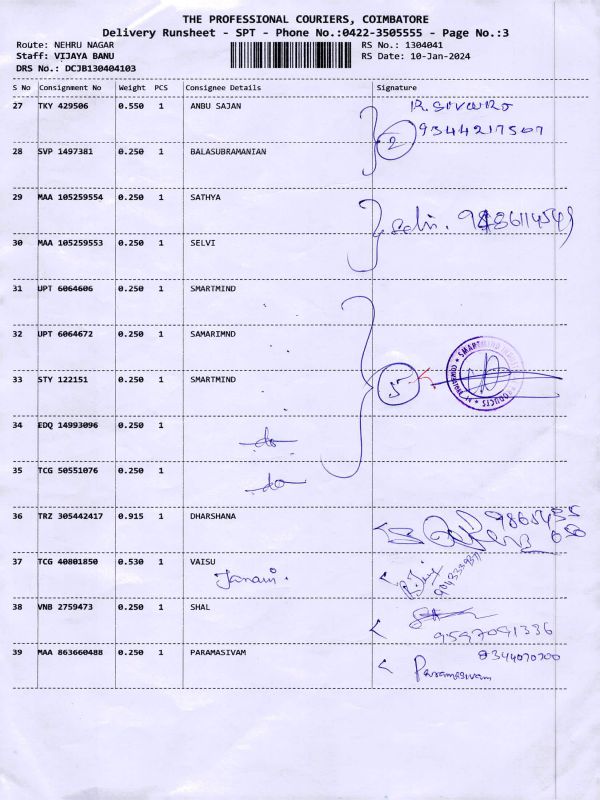 THE PROFESSIONAL COURIERS, COIMBATORE
Delivery Runsheet - SPT - Phone No.:0422-3505555 - Page No.:3
Route: NEHRU NAGAR RS No.: 1304041
Staff: VIJAYA BANU RS Date: 10-Jan-2024
DRS No.: DCJB130404103
S No Consignment No Weight PCS Consignee Details Signature
27 TKY 429506 0.550 1 ANBU SAJAN
2 9344217507
28 SVP 1497381 0.250 1 BALASUBRAMANIAN
29 MAA 105259554 0.250 1 SATHYA
30 MAA 105259553 0.250 1 SELVI
31 UPT 6064606 0.250 1 SMARTMIND
32 UPT 6064672 0.250 1 SAMARIMND
33 STY 122151 0.250 1 SMARTMIND 5
34 EDQ 14993096 0.250 1
do
35 TCG 50551076 0.250 1
do
36 TRZ 305442417 0.915 1 DHARSHANA
37 TCG 40801850 0.530 1 VAISU
Janani.
38 VNB 2759473 0.250 1 SHAL
9597091336
39 MAA 863660488 0.250 1 PARAMASIVAM
Paramasivam